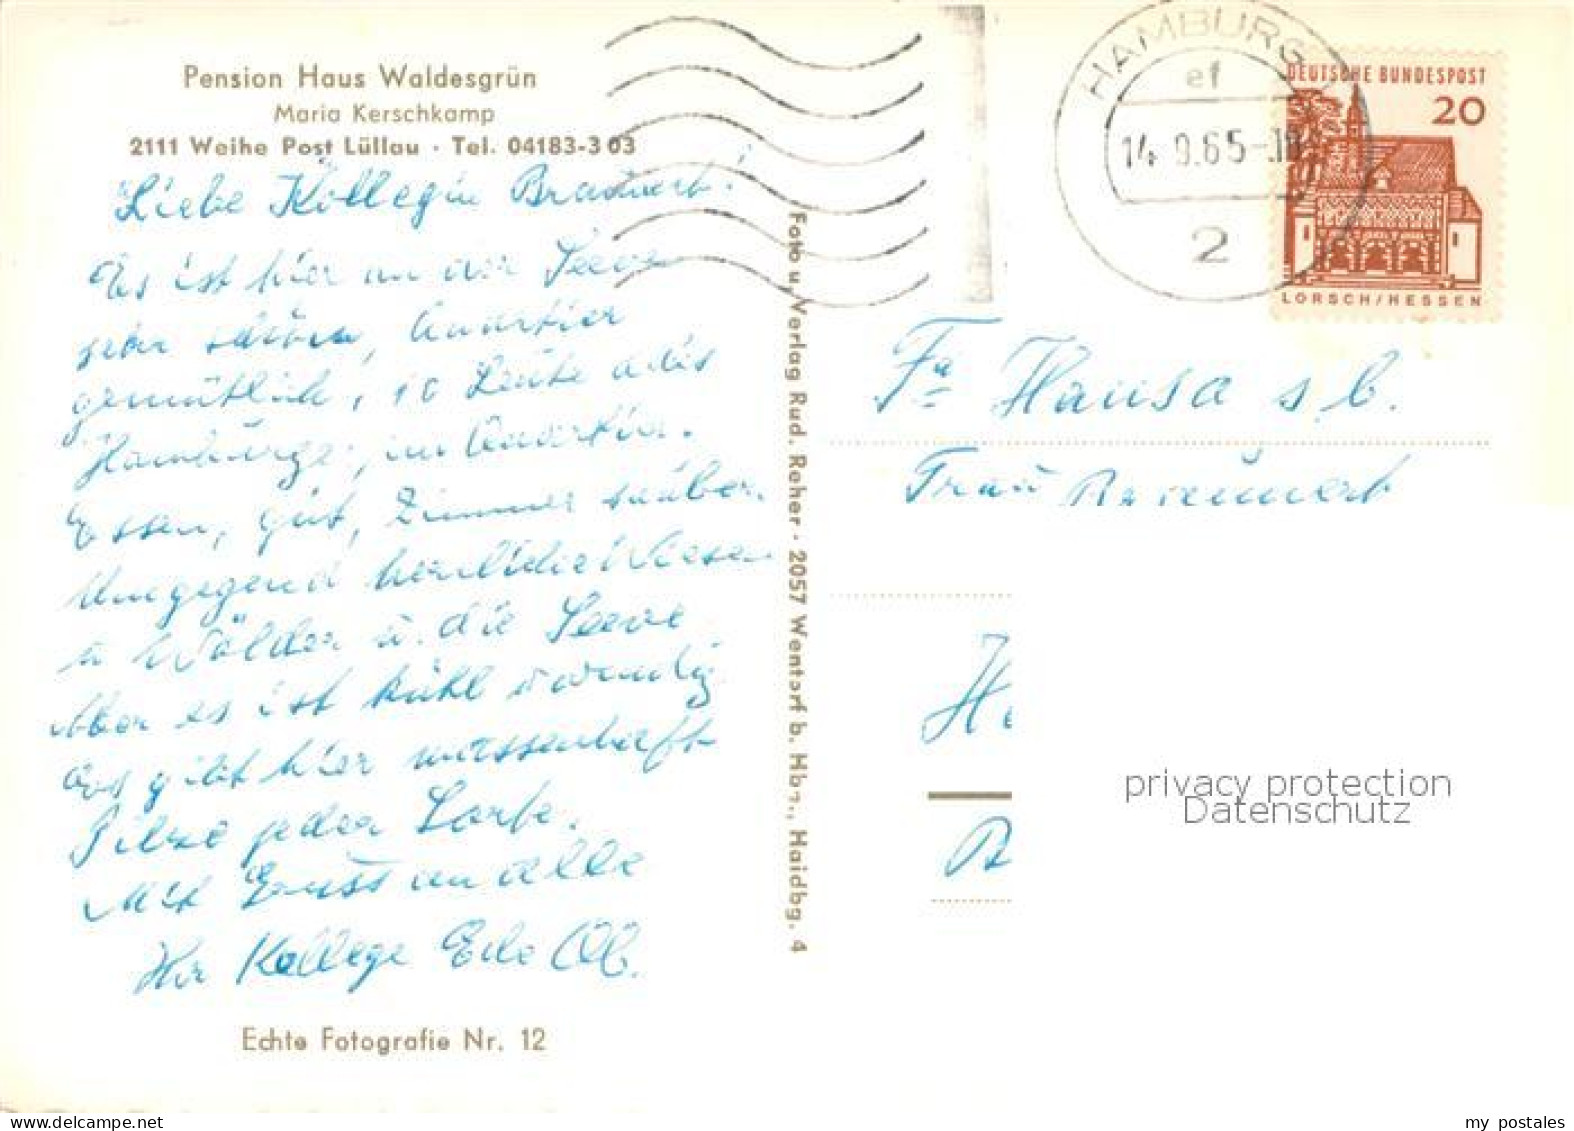 Pension Haus Waldesgrün
Maria Kerschkamp
2111 Weihe Post Lüllau · Tel. 04183-303
Liebe Kollegin
Es ist hier an der Seeve
sehr schön, Quartier
gemütlich, 10 Leute alles
Hamburger im Quartier.
Essen, gut, Zimmer sauber.
Umgegend herrliche Wiesen
u Wälder u. die Seeve
Aber es ist kühl u windig
es gibt hier massenhaft
Pilze jeder Sorte.
Mit Gruss an alle
Ihr Kollege
Echte Fotografie Nr. 12
Foto u. Verlag Rud. Reher · 2057 Wentorf b. Hbg., Haidbg. 4
HAMBURG
ef
14.9.65-18
2
DEUTSCHE BUNDESPOST
20
LORSCH/HESSEN
Fa Hansa s. b.
Frau
H
privacy protection
Datenschutz
my postales
www.delcampe.net